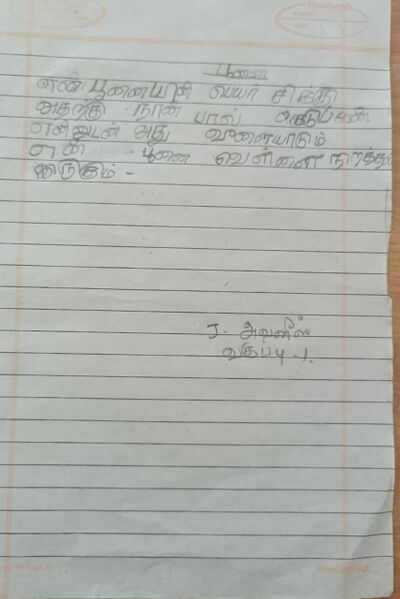 பூனை
என் பூனையின் பெயர் சிக்கு
அதற்கு நான் பால் கொடுப்பேன்
என்னுடன் அது விளையாடும்
என் பூனை வெள்ளை நிறத்தில்
இருக்கும் -
J. அவனிஷ்
வகுப்பு - 1.